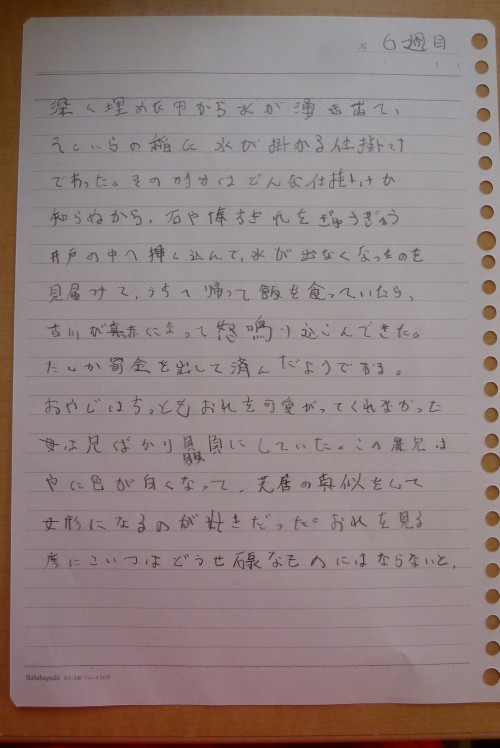 × 6週目
深く埋めた中から水が湧き出て、
そこいらの稲に水が掛かる仕掛け
であった。その時分はどんな仕掛けか
知らぬから、石や棒ちぎれをぎゅうぎゅう
井戸の中へ挿し込んで、水が出なくなったのを
見届けて、うちへ帰って飯を食っていたら、
古川が真赤になって怒鳴り込こんできた。
たしか罰金を出して済んだようである。
おやじはちっともおれを可愛がってくれなかった
母は兄ばかり贔屓にしていた。この兄は
やに色が白くなって、芝居の真似をして
女形になるのが好きだった。おれを見る
度にこいつはどうせ碌なものにはならないと、
Nakabayashi